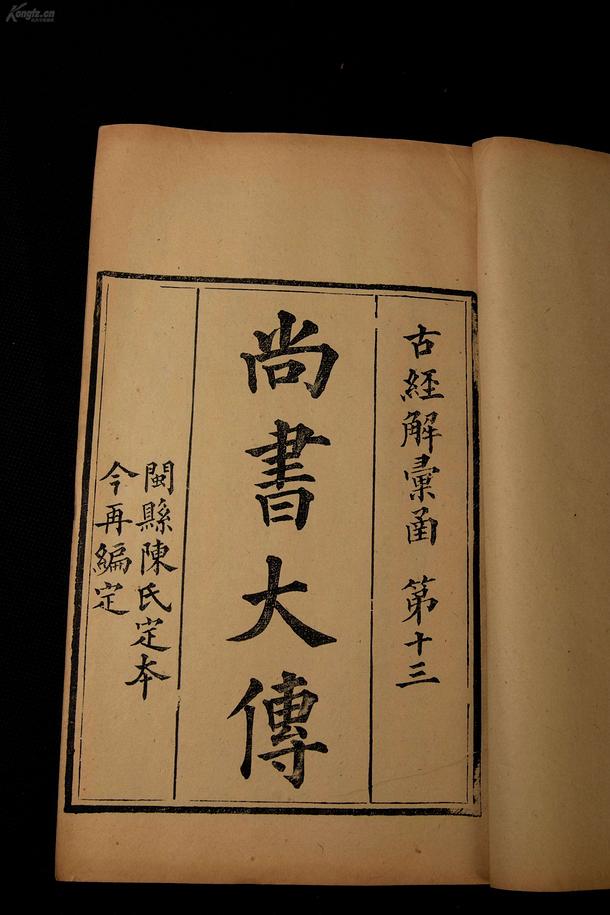 古經解彙函 第十三
尚書大傳
閩縣陳氏定本
今再編定
Kongfz.cn